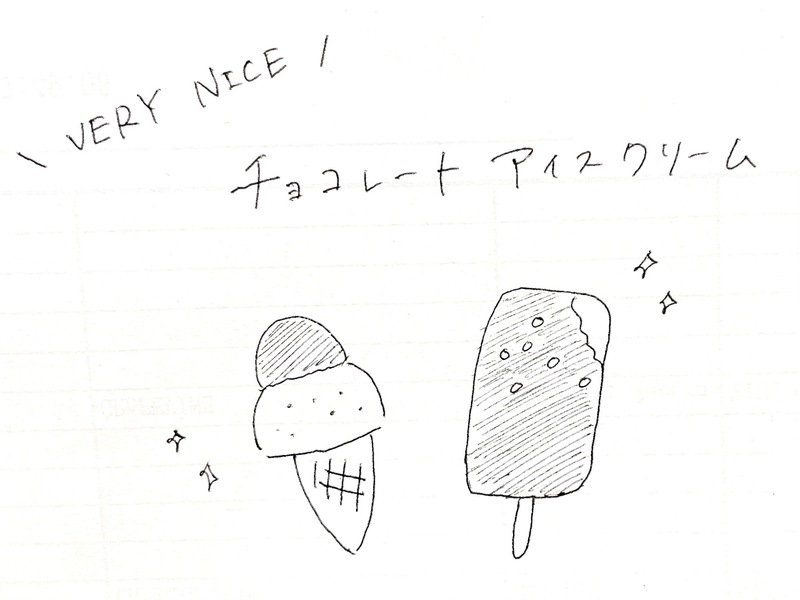 \ VERY NICE /
チョコレート アイスクリーム